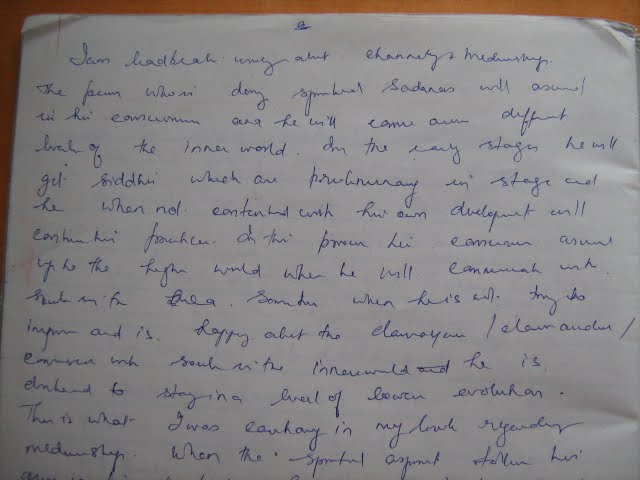 I am               about channeling & mediumship.
The person who is doing spiritual Sadanas will ascend
in his consciousness and he will come across different
levels of the inner world. In the early stages he will
get siddhis which are preliminary in stage and
he when not contented with his own development will
continue his practice. In this process his consciousness ascend
up to the higher world when he will communicate with
souls in the area. Sometimes when he is not trying to
improve and is happy about the clairvoyance / clairaudience /
 with souls in the inner world he is
 to stay in a level of lower evolution.
This is what I was                in my book regarding
mediumship. When the spiritual aspirant follows his